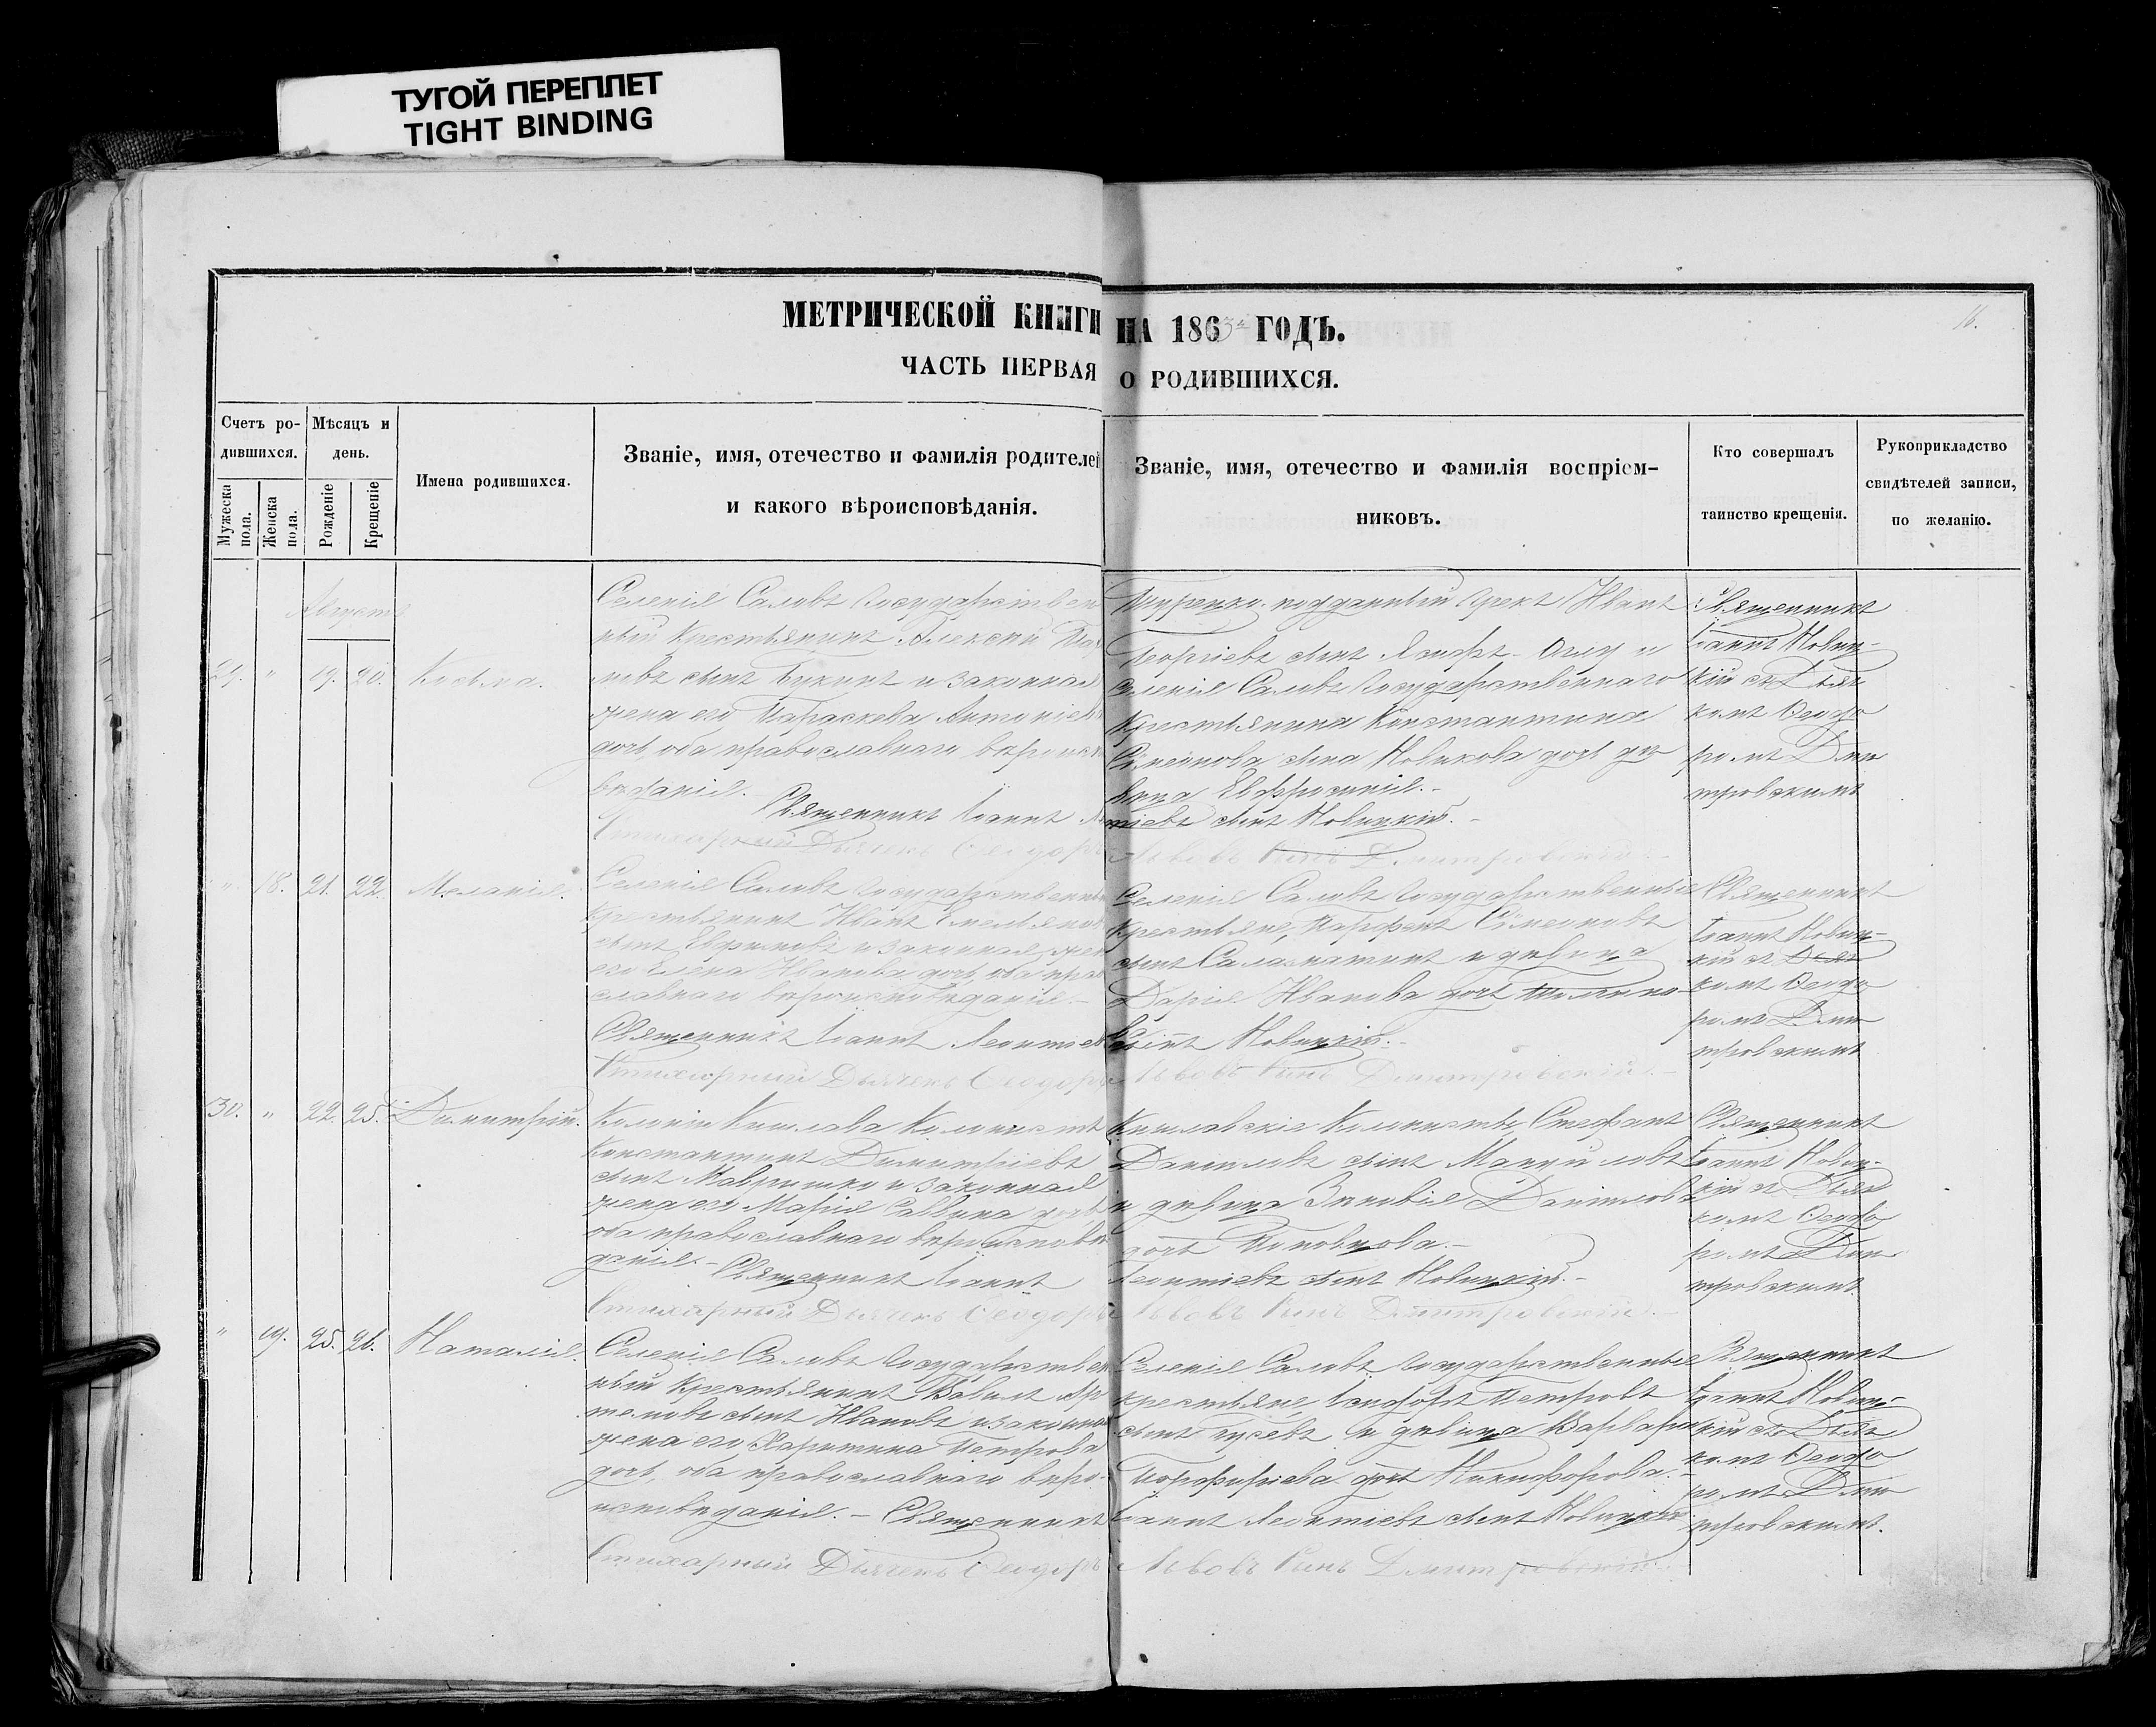 ТУГОЙ ПЕРЕПЛЕТ
TIGHT BINDING
МЕТРИЧЕСКОЙ КНИГИ НА 1863й ГОДЪ.
ЧАСТЬ ПЕРВАЯ О РОДИВШИХСЯ.
16.
Счетъ ро-
дившихся.
Мужеска пола.
Женска пола.
Мѣсяцъ и
день.
Рожденіе
Крещеніе
Имена родившихся.
Званіе, имя, отечество и фамилія родителей
и какого вѣроисповѣданія.
Званіе, имя, отечество и фамилія воспріем-
никовъ.
Кто совершалъ
таинство крещенія.
Рукоприкладство
свидѣтелей записи,
по желанію.
Августъ
29. " 19. 20. Косьма.
Селенія Саловъ Государствен
ный Крестьянинъ Алексій
сынъ Букинъ и законная
жена его Параскева Антоніева
дочь, оба православнаго вѣроиспо
вѣданія.
Священникъ Іоаннъ
Стихарный Дьячекъ Ѳеодоръ
подданный Грекъ Иванъ
Георгіевъ сынъ и
селенія Саловъ Государственнаго
Крестьянина Константина
Симеонова сына Новикова дочь дѣ
вица Евфросинія.
сынъ Новицкій.
Львовъ сынъ Дмитровскій.
Священникъ
Іоаннъ Новиц-
кій съ Дьяч
комъ Ѳеодо
ромъ Дми
тровскимъ
" 18. 21. 22. Меланія.
Селенія Саловъ Государственный
Крестьянинъ Иванъ Емельяновъ
сынъ Ефимовъ и законная жена
его Елена Иванова дочь, оба пра
славнаго вѣроисповѣданія.
Священникъ Іоаннъ Леонтіевъ
Стихарный Дьячекъ Ѳеодоръ
Селенія Саловъ Государственные
крестьяне, Парфенъ Симеоновъ
сынъ Саламатинъ и дѣвица
Дарія Иванова дочь
сынъ Новицкій.
Львовъ сынъ Дмитровскій.
Священникъ
Іоаннъ Новиц-
кій съ Дьяч
комъ Ѳеодо
ромъ Дми
тровскимъ
30. " 22. 25. Димитрій.
Колоніи Кишлава Колонистъ
Константинъ Димитріевъ
сынъ и законная
жена его Марія Саввина дочь
оба православнаго вѣроисповѣ
данія. Священникъ Іоаннъ
Стихарный Дьячекъ Ѳеодоръ
Кишлавскіе Колонисты, Стефанъ
Даніиловъ сынъ Мануиловъ
и дѣвица Зиновія Даніилова
дочь
Леонтіевъ сынъ Новицкій.
Львовъ сынъ Дмитровскій.
Священникъ
Іоаннъ Новиц-
кій съ Дьяч
комъ Ѳеодо
ромъ Дми
тровскимъ
" 19. 25. 26. Наталія.
Селенія Саловъ Государствен
ный Крестьянинъ Вавилъ Ар
темовъ сынъ Ивановъ и законная
жена его Харитина Петрова
дочь, оба православнаго вѣро-
исповѣданія. Священникъ
Стихарный Дьячекъ Ѳеодоръ
Селенія Саловъ Государственные
крестьяне, Петровъ
сынъ Гусевъ и дѣвица Варвара
Порфиріева дочь Никифорова.
Іоаннъ Леонтіевъ сынъ Новицкій
Львовъ сынъ Дмитровскій.
Священникъ
Іоаннъ Новиц-
кій съ Дьяч
комъ Ѳеодо
ромъ Дми
тровскимъ.